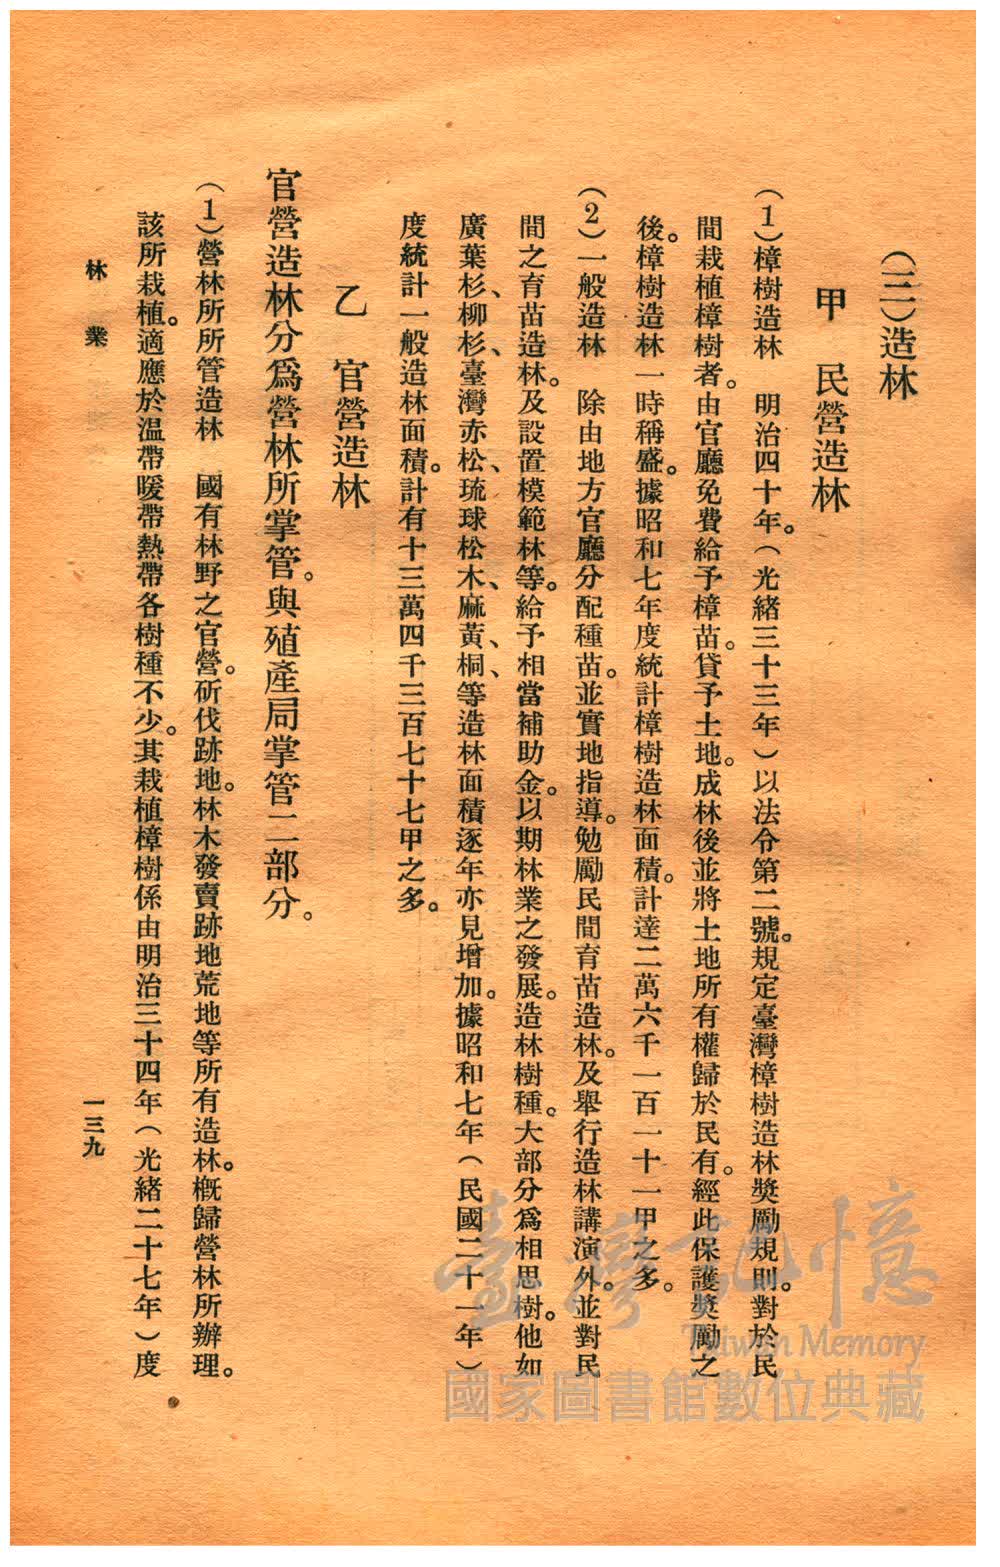 (三)造林
甲　民營造林
(1)樟樹造林　明治四十年。(光緒三十三年)以法令第二號。規定臺灣樟樹造林獎勵規則。對於民
間栽植樟樹者。由官廳免費給予樟苗。貸予土地。成林後並將土地所有權歸於民有。經此保護獎勵之
後。樟樹造林一時稱盛。據昭和七年度統計樟樹造林面積。計達二萬六千一百一十一甲之多。
(2)一般造林　除由地方官廳分配種苗。並實地指導。勉勵民間育苗造林。及舉行造林講演外。並對民
間之育苗造林。及設置模範林等。給予相當補助金。以期林業之發展。造林樹種。大部分爲相思樹。他如
廣葉杉、柳杉、臺灣赤松、琉球松木、麻黃、桐、等造林面積逐年亦見增加。據昭和七年(民國二十一年)
度統計一般造林面積。計有十三萬四千三百七十七甲之多。
乙　官營造林
官營造林分爲營林所掌管。與殖產局掌管二部分。
(1)營林所所管造林　國有林野之官營。斫伐跡地。林木發賣跡地荒地等所有造林。概歸營林所辦理。
該所栽植。適應於温帶暖帶熱帶各樹種不少。其栽植樟樹係由明治三十四年(光緒二十七年)度
林業
一三九
臺灣記憶
Taiwan Memory
國家圖書館數位典藏